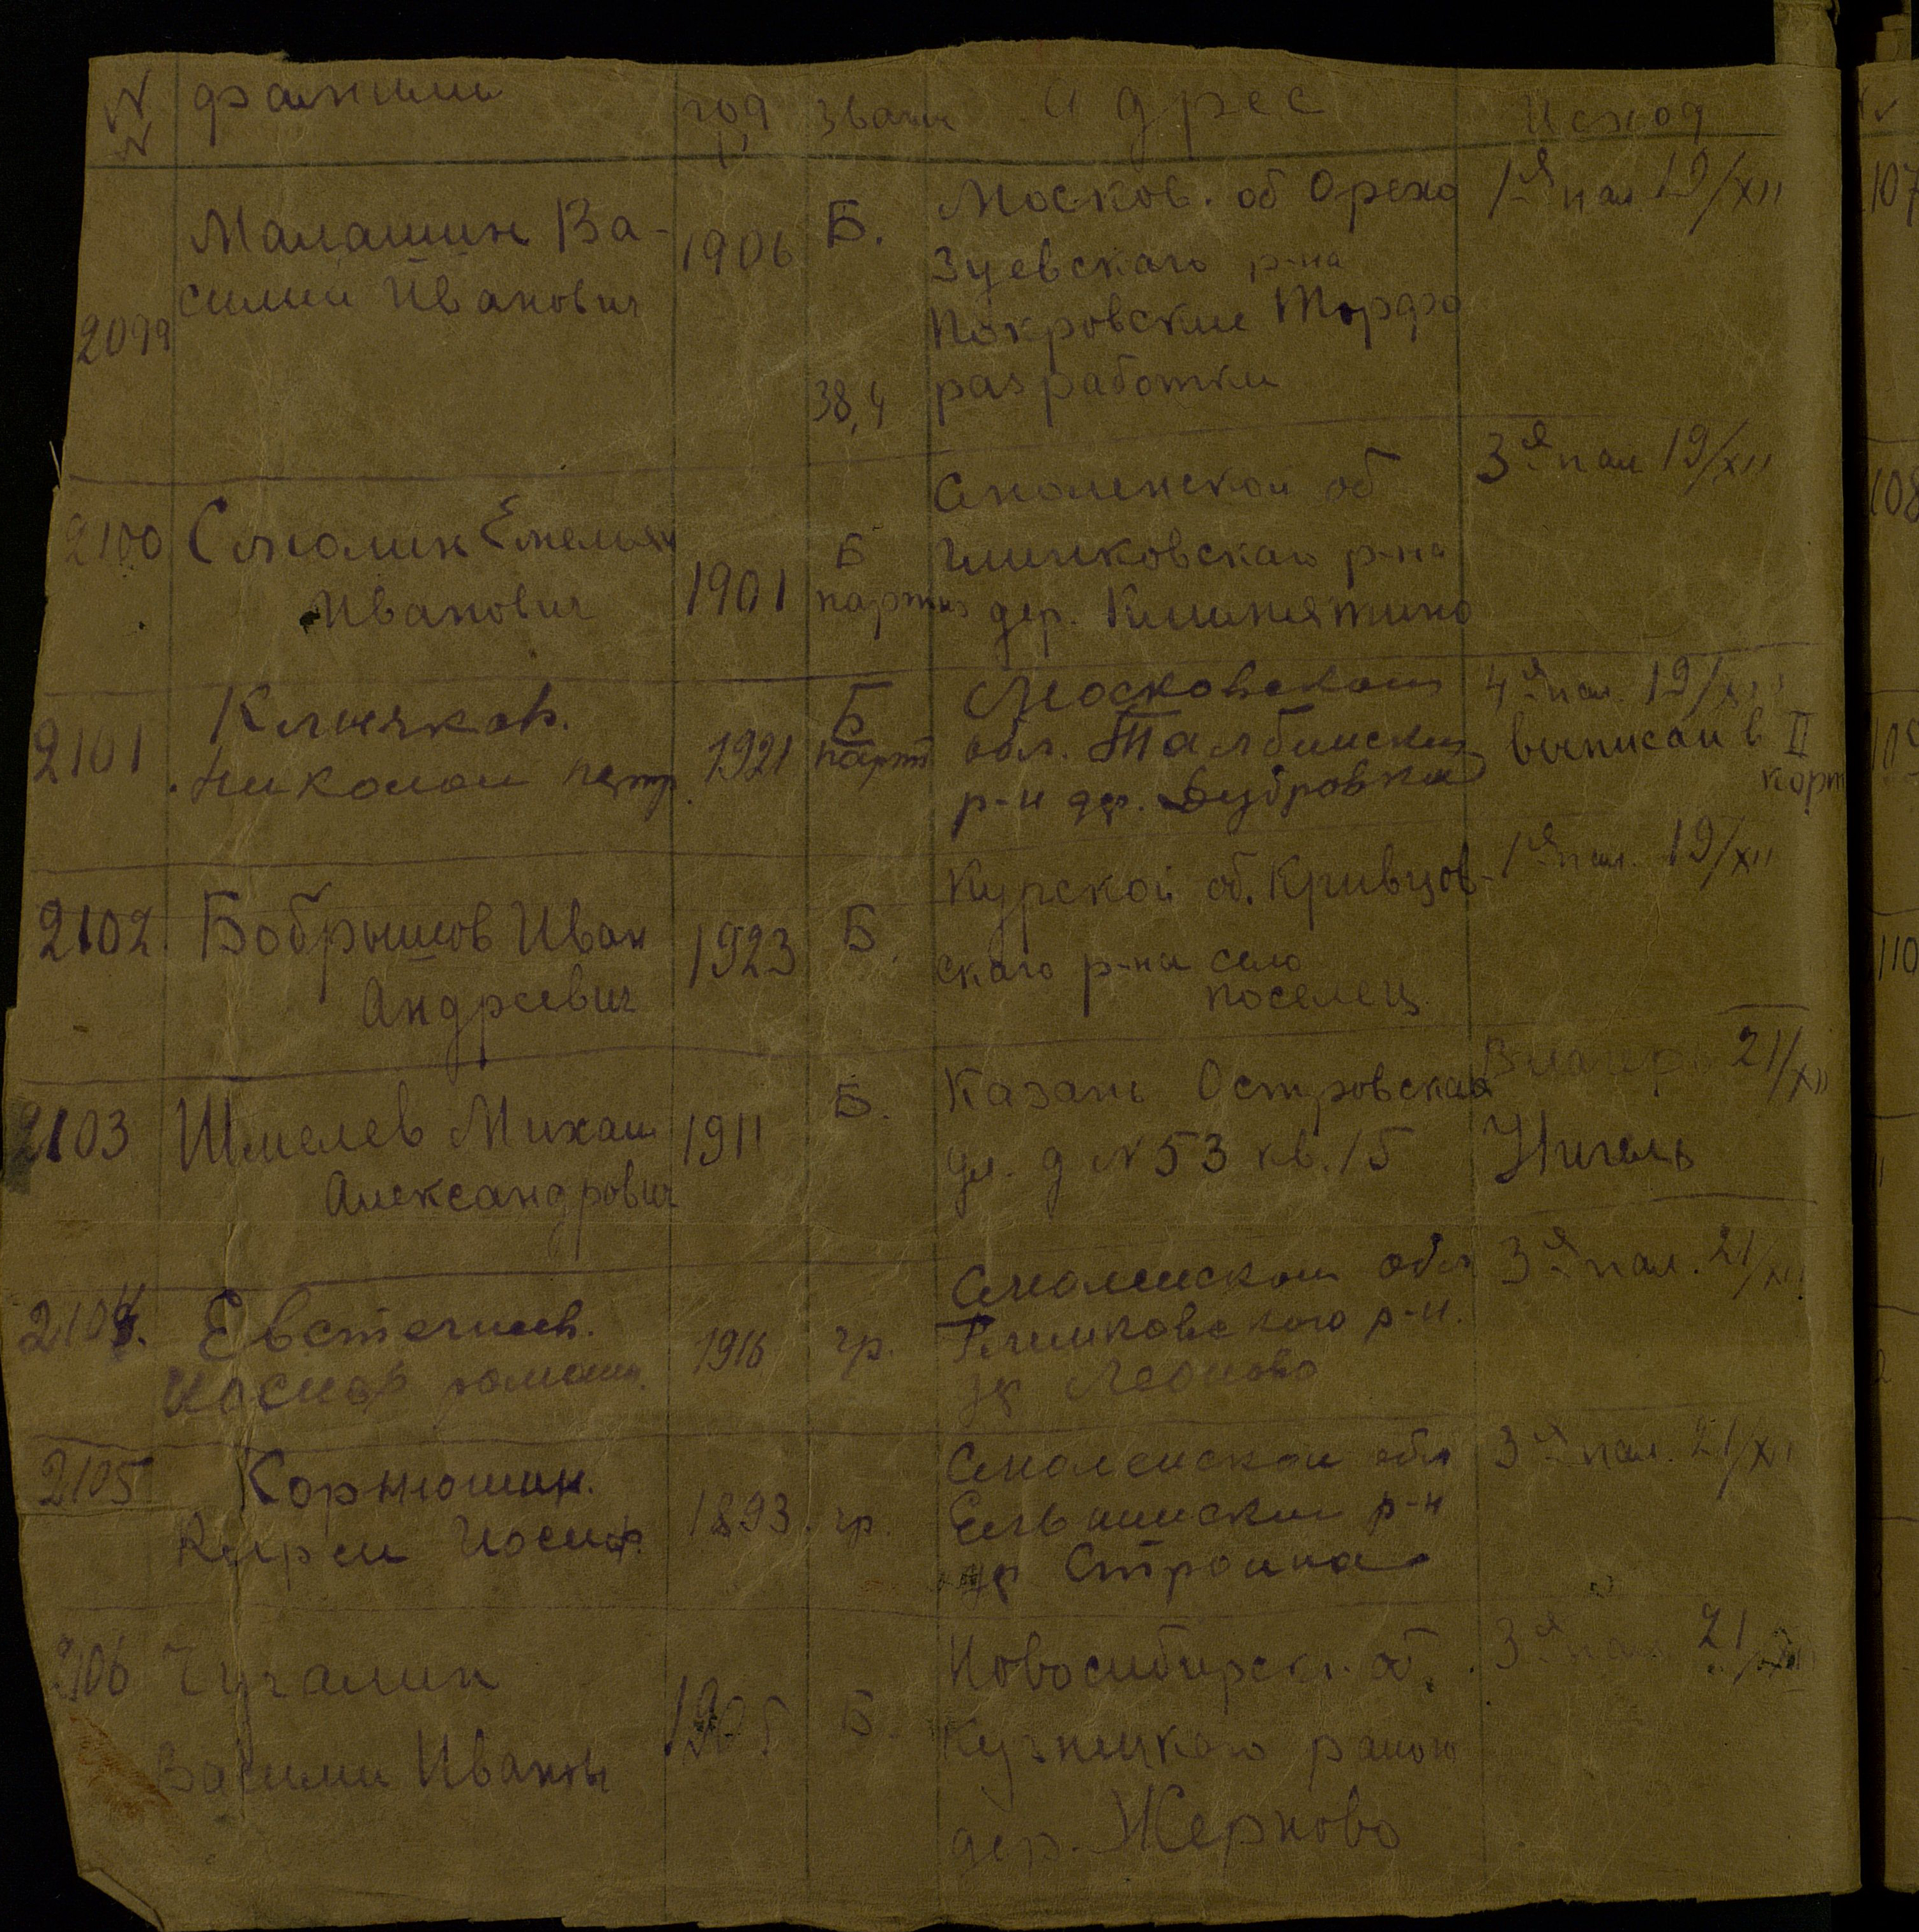 N фамилии год Звание Адрес Исход
N р
Малашин Ва- 1906 Б. Москов. об Орехо 1я пал 19/XII
силий Иванович Зуевскаго р-на
2099 Покровские Торфо
38,4 разработки
2100 Смолин Емельян Смоленской об 3я пал 19/XII
Иванович 1901 Б Глинковскаго р-на
партиз дер. Климятино
2101 Клычков. 1921 Б Московской 4я пал. 19/XII
Николай Петр. парт обл. Талбински выписан в II
р-н др. Дубровки корп
2102 Бобрышов Иван 1923 Б. Курской об. Кривцов- 1я пал. 19/XII
Андреевич скаго р-на село
поселец
2103 Шмелев Михаил 1911 Б. Казань Островская 21/XII
Александрович ул. д N 53 кв. 15
2104. 1916 гр. Смоленской обл 3я пал. 21/XII
Глинковского р-н.
др Леоново
2105 Корнюшин. 1893. гр. Смоленской обл 3я пал. 21/XII
Иосиф. р-н
др
2106 Чугалин Б. Новосибирск. об. 3я пал 21/XII
Василий Иванов Кузнецкаго
дер. Жерново
107
108
109
110